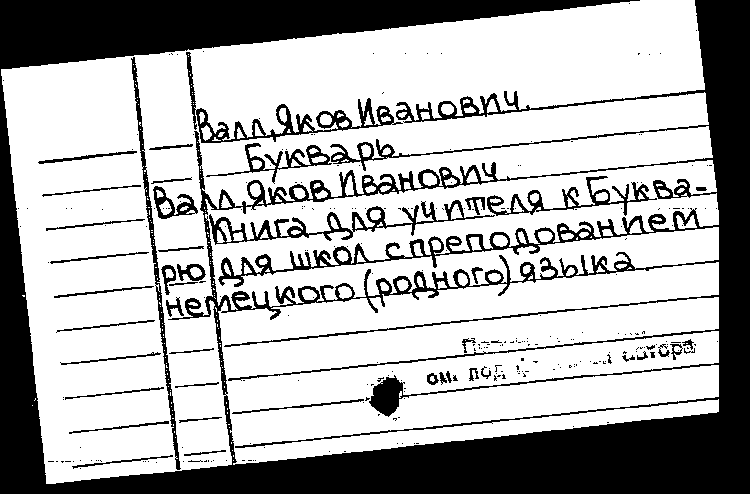 Валл, Яков Иванович.
Букварь.
Валл, Яков Иванович.
Книга для учителя к Буква-
рю для школ с преподованием
немецкого (родного) языка.
см. под автора